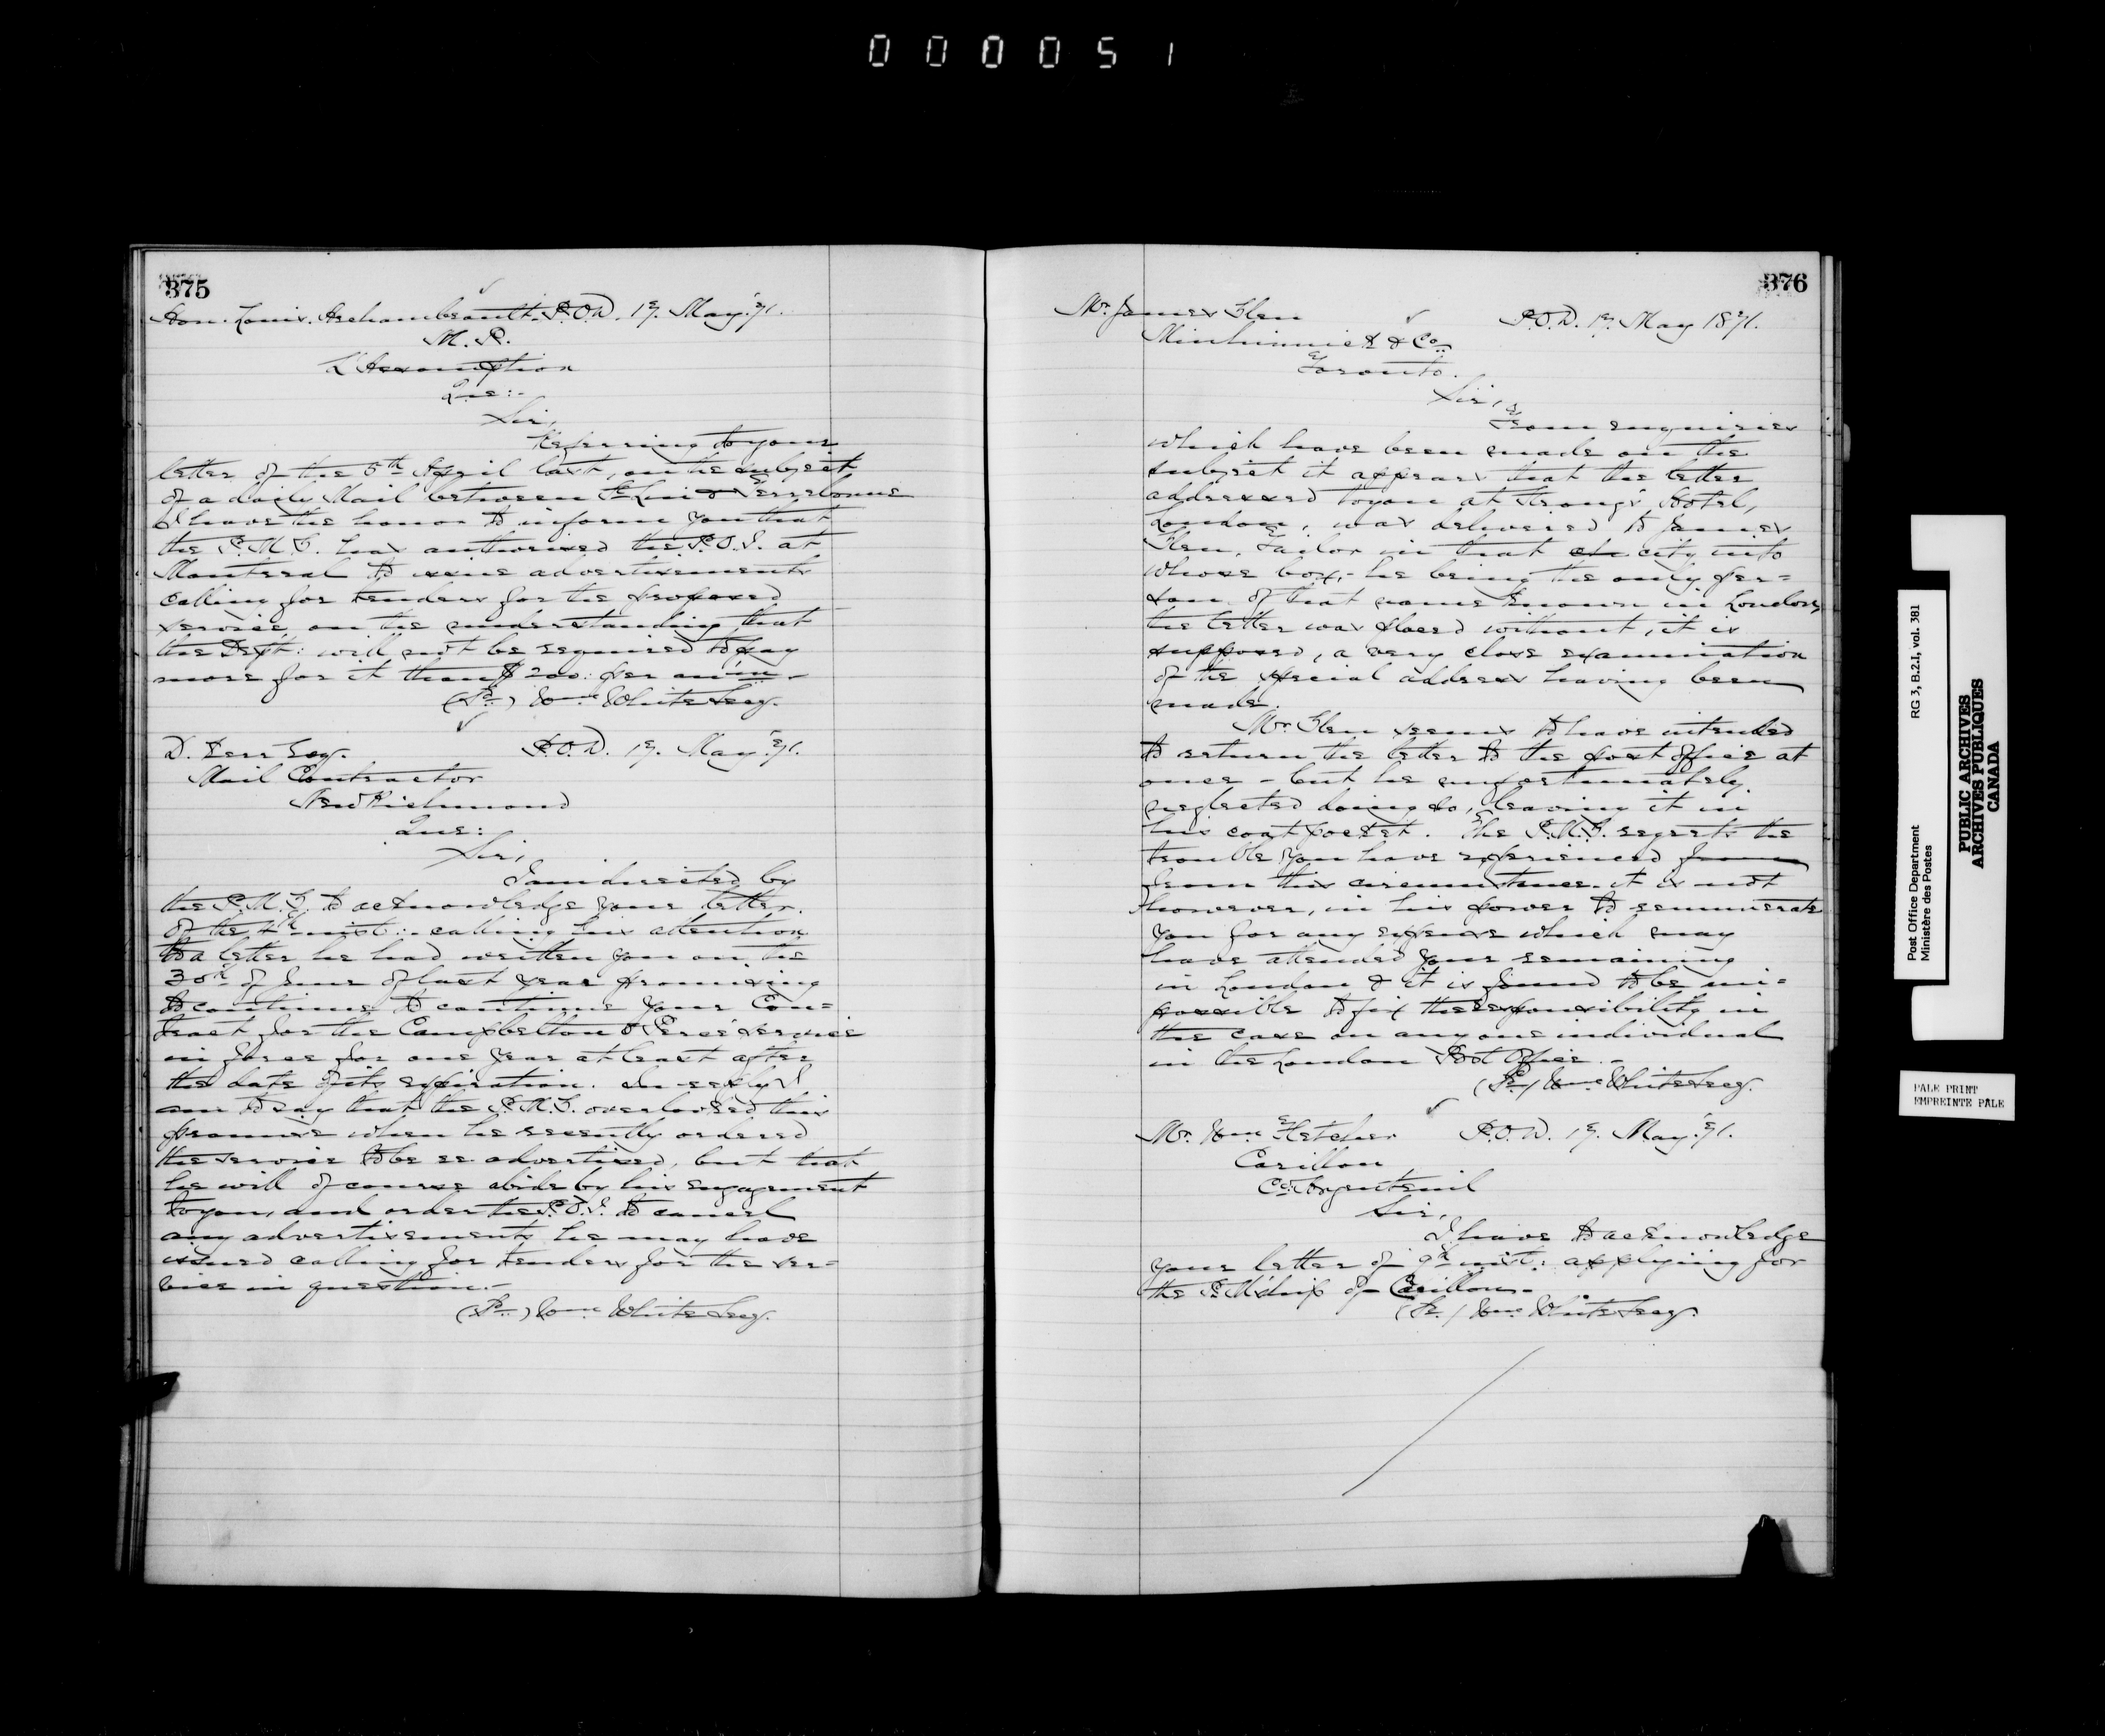 000051
375
Hon. Louis. Archambeault. P.O.D. 19. May '71.
M.P.
L'Assomption
Que:-
Sir,
Referring to your
letter of the 5th April last, on the subject
of a daily Mail between St Lin & Terrebonne
I have the honor to inform you that
the P.M.G. has authorised the P.O.I. at
Montreal to issue advertisements
calling for tenders for the proposed
service, on the understanding that
the Dept: will not be required to pay
more for it than $200. per an'm.-
Wm White Secy.
D. Kerr Esq. P.O.D. 19. May '71.
Mail Contractor
New Richmond
Que:
Sir,
I am directed by
the P.M.G. to acknowledge your letter
of the 4th inst:- calling his attention
to a letter he had written you on the
30th of June of last year promising
to continue to continue your Con=
tract for the Campbelton & Percé service
in force for one year at least after
the date of its expiration. In reply I
am to say that the P.M.G. overlooked this
promise when he recently ordered
the service to be re advertised, but that
he will of course abide by his engagement
to you, and order the P.O.I. to cancel
any advertisements he may have
issued calling for tenders for the ser=
vice in question.-
Wm White Secy.
376
Mr James Glen P.O.D. 19. May 1871.
Minhinnick & Co.
Toronto.
Sir,
From enquiries
which have been made on the
subject it appears that the letter
addressed to you at Strong's Hotel,
London, was delivered to James
Glen, Tailor in that ch city into
whose box,- he being the only per=
son of that name known in London,
the letter was placed without, it is
supposed, a very close examination
of the special address having been
made.
Mr Glen seems to have intended
to return the letter to the post office at
once - but he unfortunately
neglected doing so, leaving it in
his coat pocket. The P.M.G. regrets the
trouble you have experienced from
from this circumstance. it is not
however, in his power to remunerate
you for any expense which may
have attended your remaining
in London & it is found to be im=
possible to fix the responsibility in
the case on any one individual
in the London Post Office.-
Wm White Secy.
Mr. Wm Fletcher P.O.D. 19. May '71.
Carillon
Co. Argenteuil
Sir,
I have to acknowledge
your letter of 9th inst: applying for
the P.M'ship of Carillon.-
Wm White Secy.
Post Office Department RG 3, B.2.I, vol. 381
Ministère des Postes
PUBLIC ARCHIVES
ARCHIVES PUBLIQUES
CANADA
PALE PRINT
EMPREINTE PALE